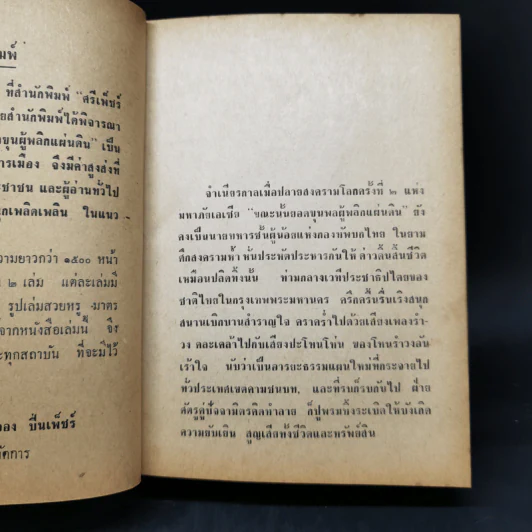 พิมพ์
ที่สำนักพิมพ์ "ศรีเพ็ชร์
ยสำนักพิมพ์ได้พิจารณา
ขุนผู้พลิกแผ่นดิน" เป็น
การเมือง จึงมีค่าสูงส่งที่
ชาชน และผู้อ่านทั่วไป
ุกเพลิดเพลิน ในแนว
ความยาวกว่า ๑๕๐๐ หน้า
๒ เล่ม แต่ละเล่มมี
รูปเล่มสวยหรู มาตร
จากหนังสือเล่มนี้ จึง
ะทุกสถาบัน ที่จะมีไว้
อง ปิ่นเพ็ชร์
จัดการ
จำเนียรกาลเมื่อปลายสงครามโลกครั้งที่ ๒ แห่ง
มหาภัยเอเซีย "ขณะนั้นยอดขุนพลผู้พลิกแผ่นดิน" ยัง
คงเป็นนายทหารชั้นผู้น้อยแห่งกองทัพบกไทย ในยาม
ศึกสงครามห้ำ หั่นประหัตประหารกันให้ ด่าวดิ้นสิ้นชีวิต
เหมือนปลิดทิ้งนั้น ท่ามกลางเวทีประชาธิปไตยของ
ชาติไทยในกรุงเทพพระมหานคร ครึกครื้นรื่นเริงสนุก
สนานเบิกบานสำราญใจ ดราคร่ำไปด้วยเสียงเพลงรำ-
วง คละเคล้าไปกับเสียงโปะโทนโท่น ของโทนรำวงอัน
เร้าใจ นับว่าเป็นอารยะธรรมแผนใหม่ที่กระจายไป
ทั่วประเทศเขตคามชนบท, และที่รบก็รบกันไป ฝ่าย
ศัตรูคู่ปัจจามิตรคิดทำลาย ก็ปูพรมทิ้งระเบิดให้บังเกิด
ความยับเยิน สูญเสียทั้งชีวิตและทรัพย์สิน